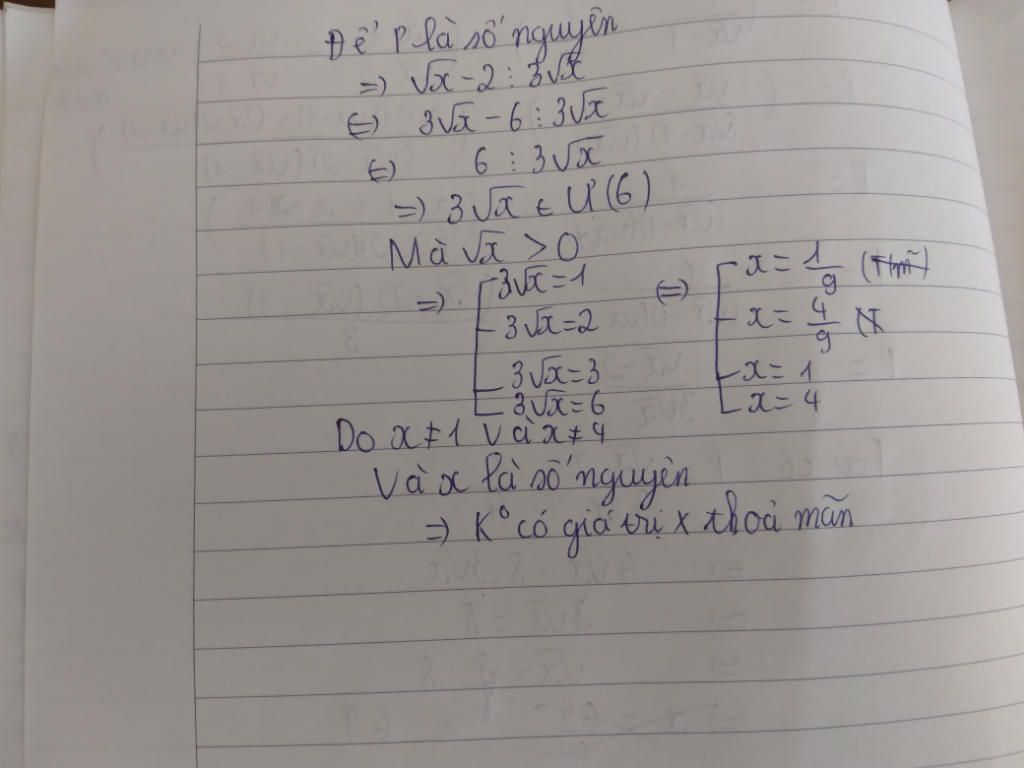 Để P là số nguyên
=> √x - 2 ⋮ 3√x
<=> 3√x - 6 ⋮ 3√x
<=> 6 ⋮ 3√x
=> 3√x ∈ Ư(6)
Mà √x > 0
=> [ 3√x = 1 <=> [ x = 1/9 (tmđk)
3√x = 2 x = 4/9
3√x = 3 x = 1
3√x = 6 x = 4
Do x ≠ 1 và x ≠ 4
Và x là số nguyên
=> K° có giá trị x thoả mãn